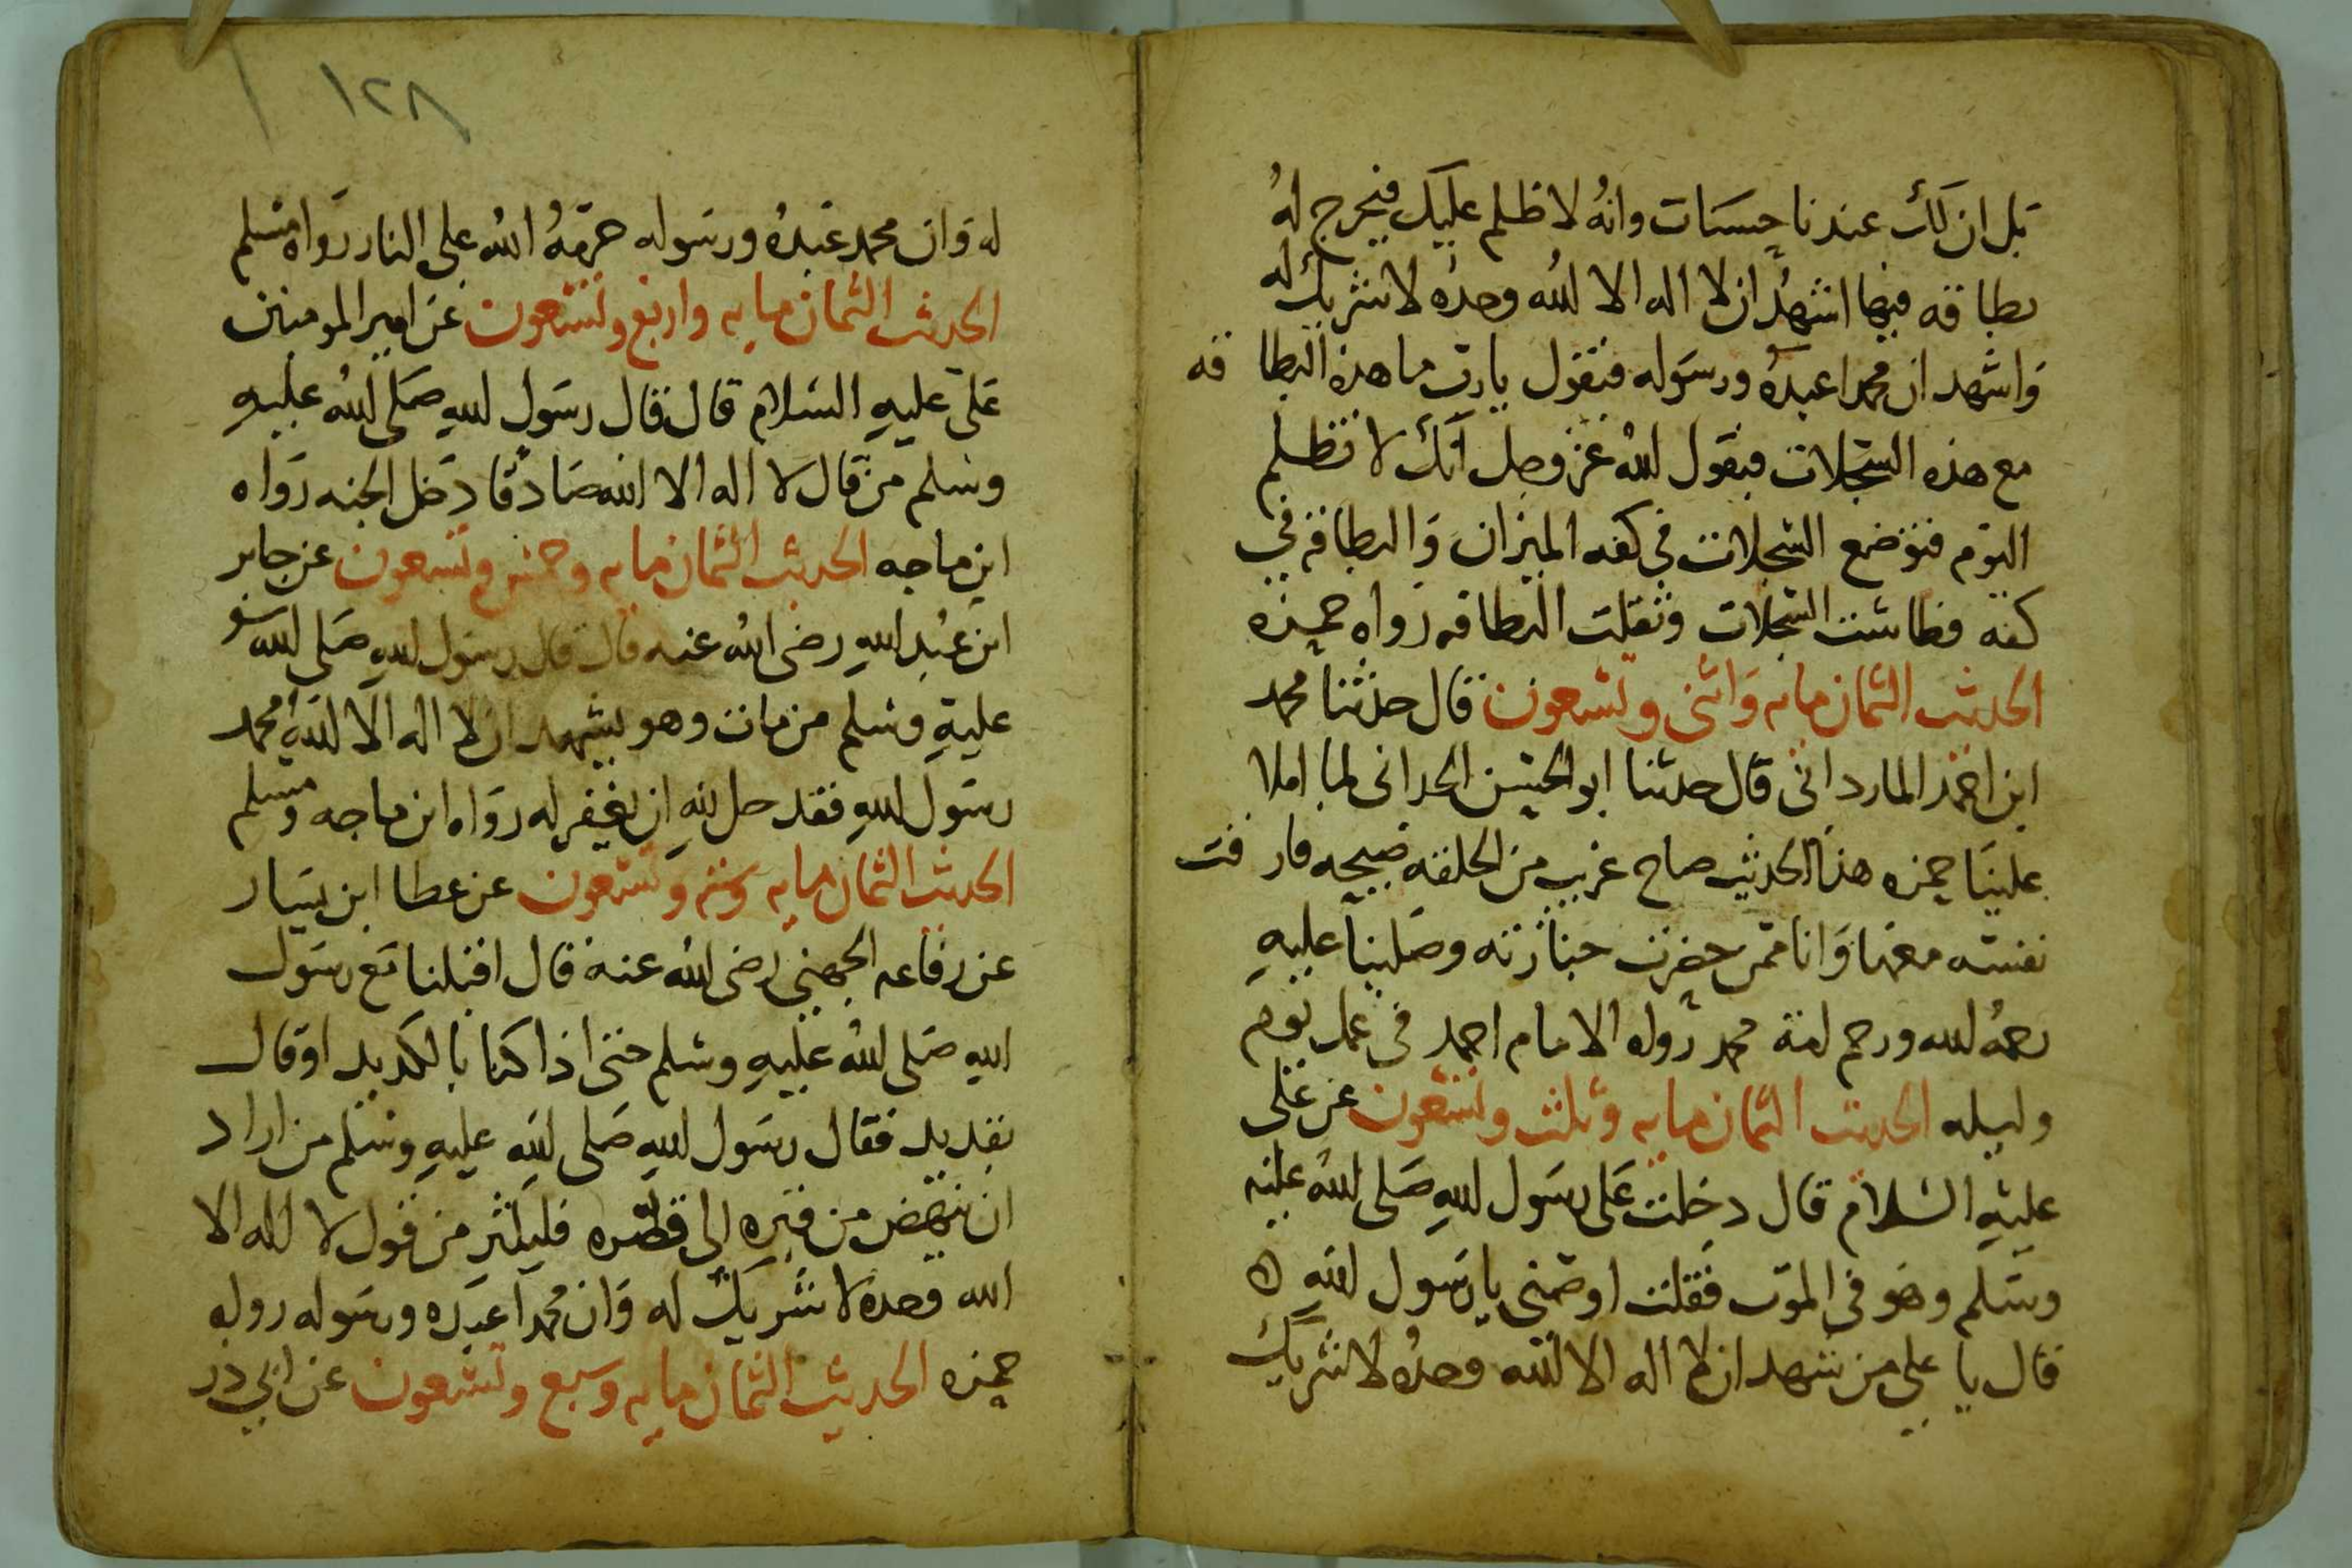 بل ان لك عندنا حسنات وانه لا ظلم عليك فيخرج له
بطاقه فيها اشهد ان لا اله الا الله وحده لا شريك له
واشهد ان محمدا عبده ورسوله فيقول يا رب ما هذه البطاقه
مع هذه السجلات فيقول الله عز وجل انك لا تظلم
اليوم فتوضع السجلات في كفه الميزان والبطاقه في
كفه فطاشت السجلات وثقلت البطاقه رواه حمزه
الحديث الثمان مايه واثنى وتسعون قال حدثنا محمد
ابن احمد الماردانى قال حدثنا ابو الحسن الحرانى لما املا
علينا حمزه هذا الحديث صاح غريب من الحلقه صيحه فارقت
نفسه معها وانا ممن حضرت جنازته وصلينا عليه
رحمه الله ورحم امة محمد رواه الامام احمد فى عمل يوم
وليله الحديث الثمان مايه وثلث وتسعون عن على
عليه السلام قال دخلت على رسول الله صلى الله عليه
وسلم وهو فى الموت فقلت اوصنى يا رسول الله ه
قال يا على من شهد ان لا اله الا الله وحده لا شريك
١٢٨
له وان محمد عبده ورسوله حرمه الله على النار رواه مسلم
الحديث الثمان مايه واربع وتسعون عن امير المومنين
على عليه السلام قال قال رسول الله صلى الله عليه
وسلم من قال لا اله الا الله صادقا دخل الجنه رواه
ابن ماجه الحديث الثمان مايه وخمس وتسعون عن جابر
ابن عبد الله رضى الله عنه قال قال رسول الله صلى الله
عليه وسلم من مات وهو يشهد ان لا اله الا الله محمد
رسول الله فقد حل لله ان يغفر له رواه ابن ماجه ومسلم
الحديث الثمان مايه وسته وتسعون عن عطا ابن يسار
عن رفاعه الجهنى رضى الله عنه قال اقبلنا مع رسول
الله صلى الله عليه وسلم حتى اذا كنا بالكديد او قال
بقديد فقال رسول الله صلى الله عليه وسلم من اراد
ان ينهض من قبره الى قصره فليكثر من قول لا اله الا
الله وحده لا شريك له وان محمدا عبده ورسوله رواه
حمزه الحديث الثمان مايه وسبع وتسعون عن ابي در